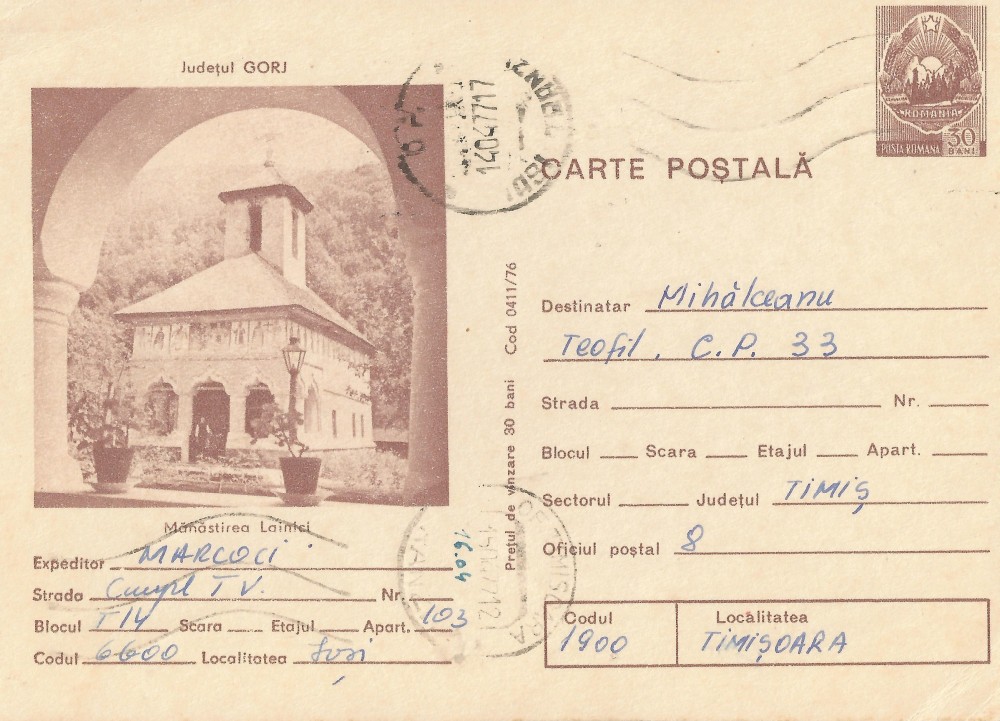 Județul GORJ
Mănăstirea Lainici
Expeditor MARCOCI
Strada TV. Nr.
Blocul T14 Scara Etajul Apart. 103
Codul 6600 Localitatea Iași
14.04.77 17
16.04
Prețul de vînzare 30 bani Cod 0411/76
ROMANIA
POSTA ROMANA 30 BANI
CARTE POȘTALĂ
Destinatar Mihâlceanu
Teofil. C.P. 33
Strada Nr.
Blocul Scara Etajul Apart.
Sectorul Județul TIMIȘ
Oficiul poștal 8
Codul Localitatea
1900 TIMIȘOARA